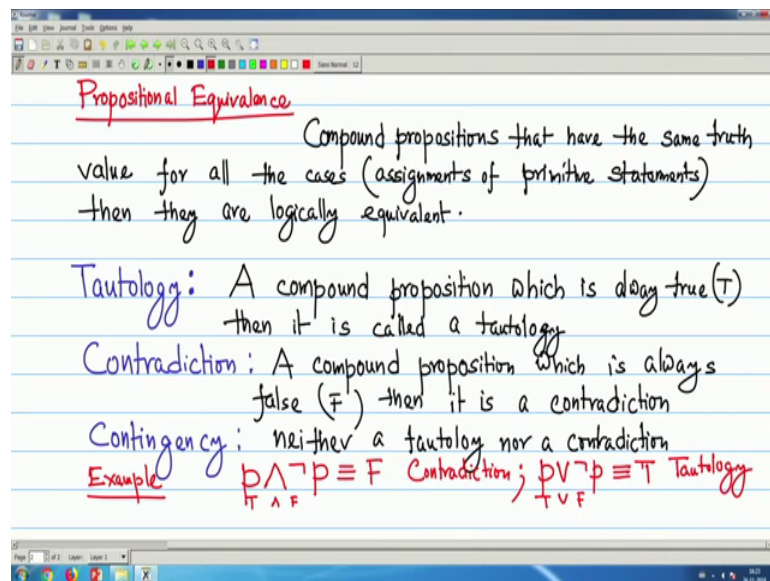 File Edit View Journal Tools Options Help
Sans Normal 12
Propositional Equivalence
Compound propositions that have the same truth
value for all the cases (assignments of primitive statements)
then they are logically equivalent.
Tautology: A compound proposition which is alway true (T)
then it is called a tautology
Contradiction: A compound proposition which is always
false (F) then it is a contradiction
Contingency: neither a tautoloy nor a contradiction
Example p ∧ ¬p ≡ F Contradiction; p ∨ ¬p ≡ T Tautology
T ∧ F T ∨ F
Page 2 of 2 Layer: Layer 1